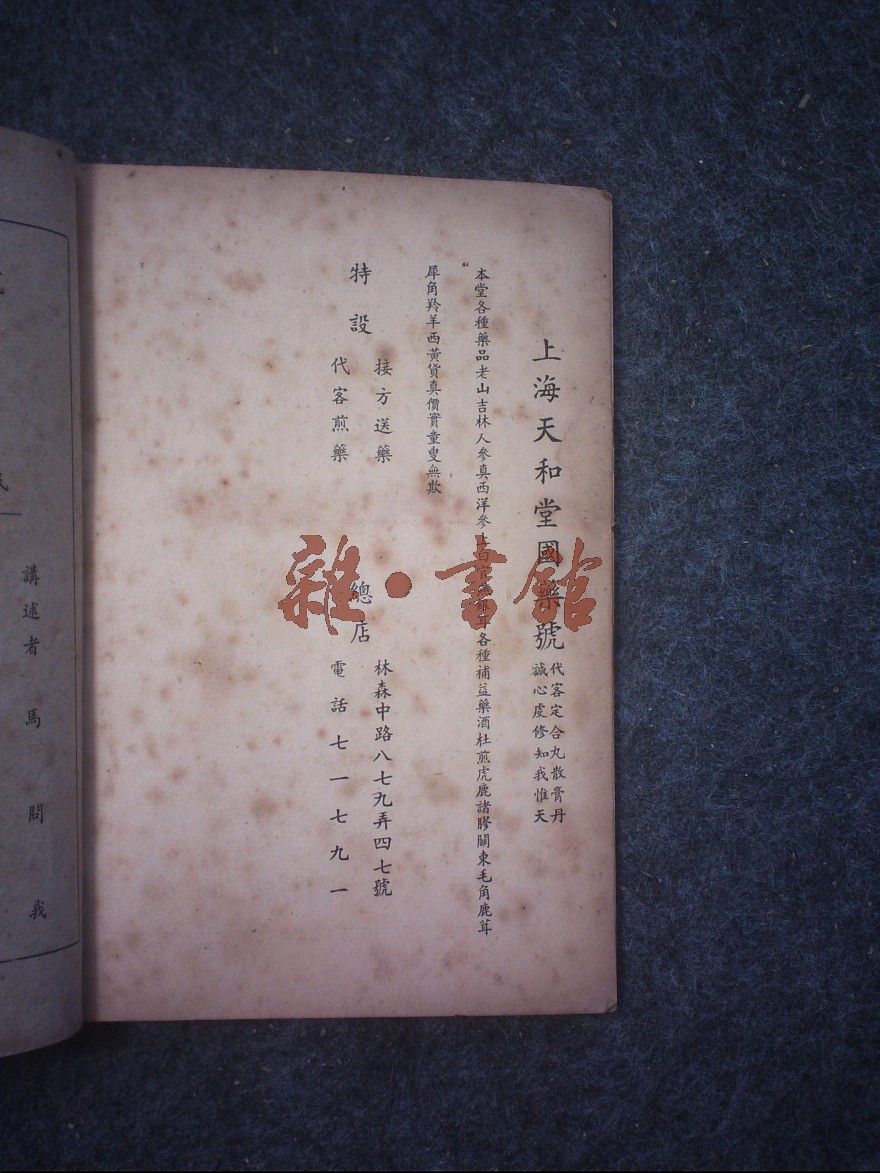 上海天和堂國藥號
代客定合丸散膏丹
誠心虔修知我惟天
本堂各種藥品老山吉林人參真西洋參上白官燕銀耳各種補益藥酒杜煎虎鹿諸膠關東毛角鹿茸
犀角羚羊西黃貨真價實童叟無欺
特設
接方送藥
代客煎藥
總店
林森中路八七九弄四七號
電話七一七九一
講述者馬問我
雜·書館